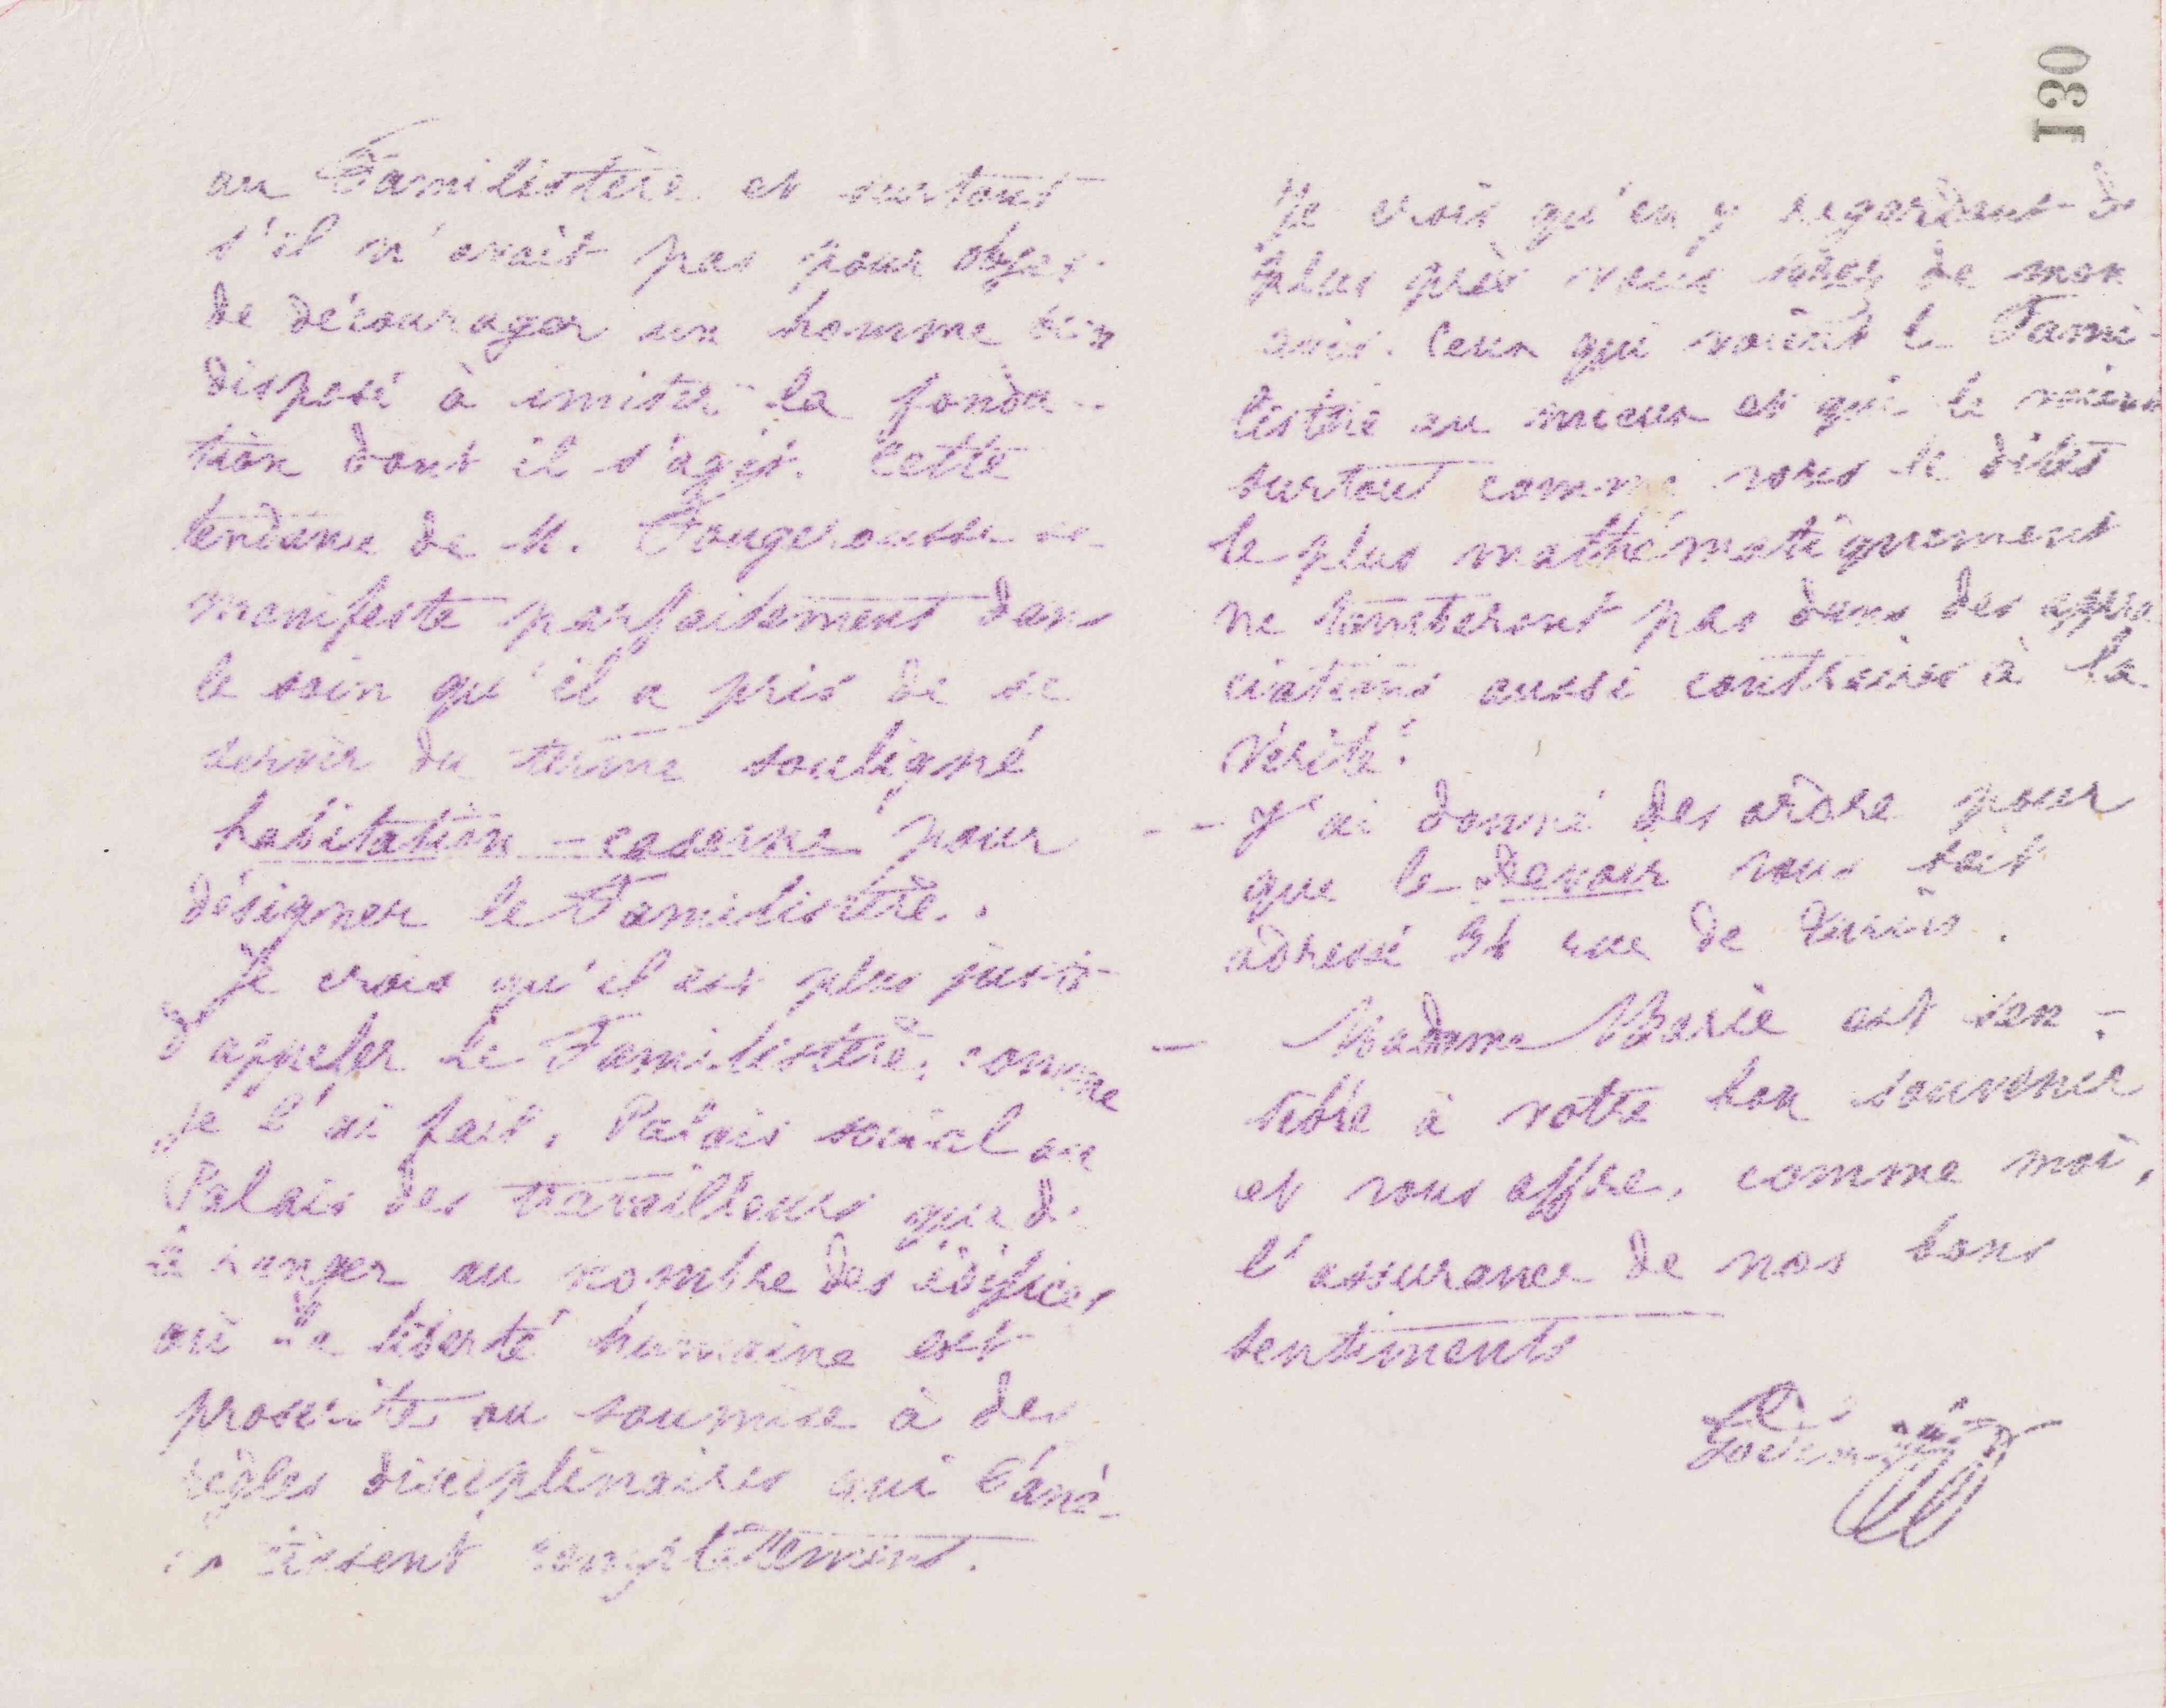 130
au Familistère et surtout
s'il n'avait pas pour objet
de décourager un homme bien
disposé à imiter la fonda-
tion dont il s'agit. Cette
tendance de M. Fougerousse se
manifeste parfaitement dans
le soin qu'il a pris de se
servir du terme souligné
habitation-caserne pour
désigner le Familistère.
Je crois qu'il est plus juste
d'appeler le Familistère, comme
je l'ai fait, Palais social ou
Palais des travailleurs que de
le ranger au nombre des édifices
où la liberté humaine est
proscrite ou soumise à des
règles disciplinaires qui l'ané-
antissent complètement.
Je crois qu'en y regardant de
plus près vous serez de mon
avis. Ceux qui voient le Fami-
listère au mieux et qui le voient
surtout comme vous le dites
le plus mathématiquement
ne tomberont pas dans des appré
ciations aussi contraires à la
vérité.
J'ai donné des ordre pour
que le Devoir vous soit
adressé 34 rue de
Madame Marie est sen-
sible à votre bon souvenir
et vous offre, comme moi,
l'assurance de nos bons
sentiments
Godin